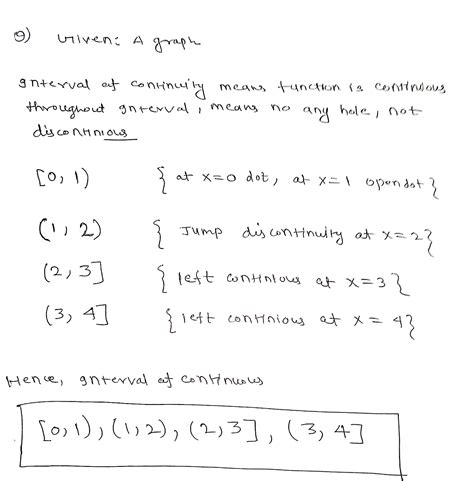 9) Given: A graph
Interval of continuity means function is continious
throughout interval, means no any hole, not
discontinious
[0, 1) { at x=0 dot, at x=1 open dot }
(1, 2) { Jump discontinuity at x=2 }
(2, 3] { left continious at x=3 }
(3, 4] { left continious at x = 4 }
Hence, interval of continuous
[0,1), (1,2), (2,3], (3, 4]